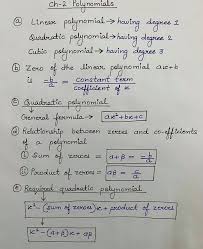 Ch-2 Polynomials
(a) Linear polynomial → having degree 1
Quadratic polynomial → having degree 2
Cubic polynomial → having degree 3
(b) Zero of the linear polynomial ax+b
is -b/a = constant term / coefficient of x
(c) Quadratic polynomial
General formula → ax²+bx+c
(d) Relationship between zeroes and co-efficients
of a polynomial
(i) Sum of zeroes = α+β = -b/a
(ii) Product of zeroes = αβ = c/a
(e) Required quadratic polynomial
x² - (sum of zeroes)x + product of zeroes
x² - (α+β)x + αβ